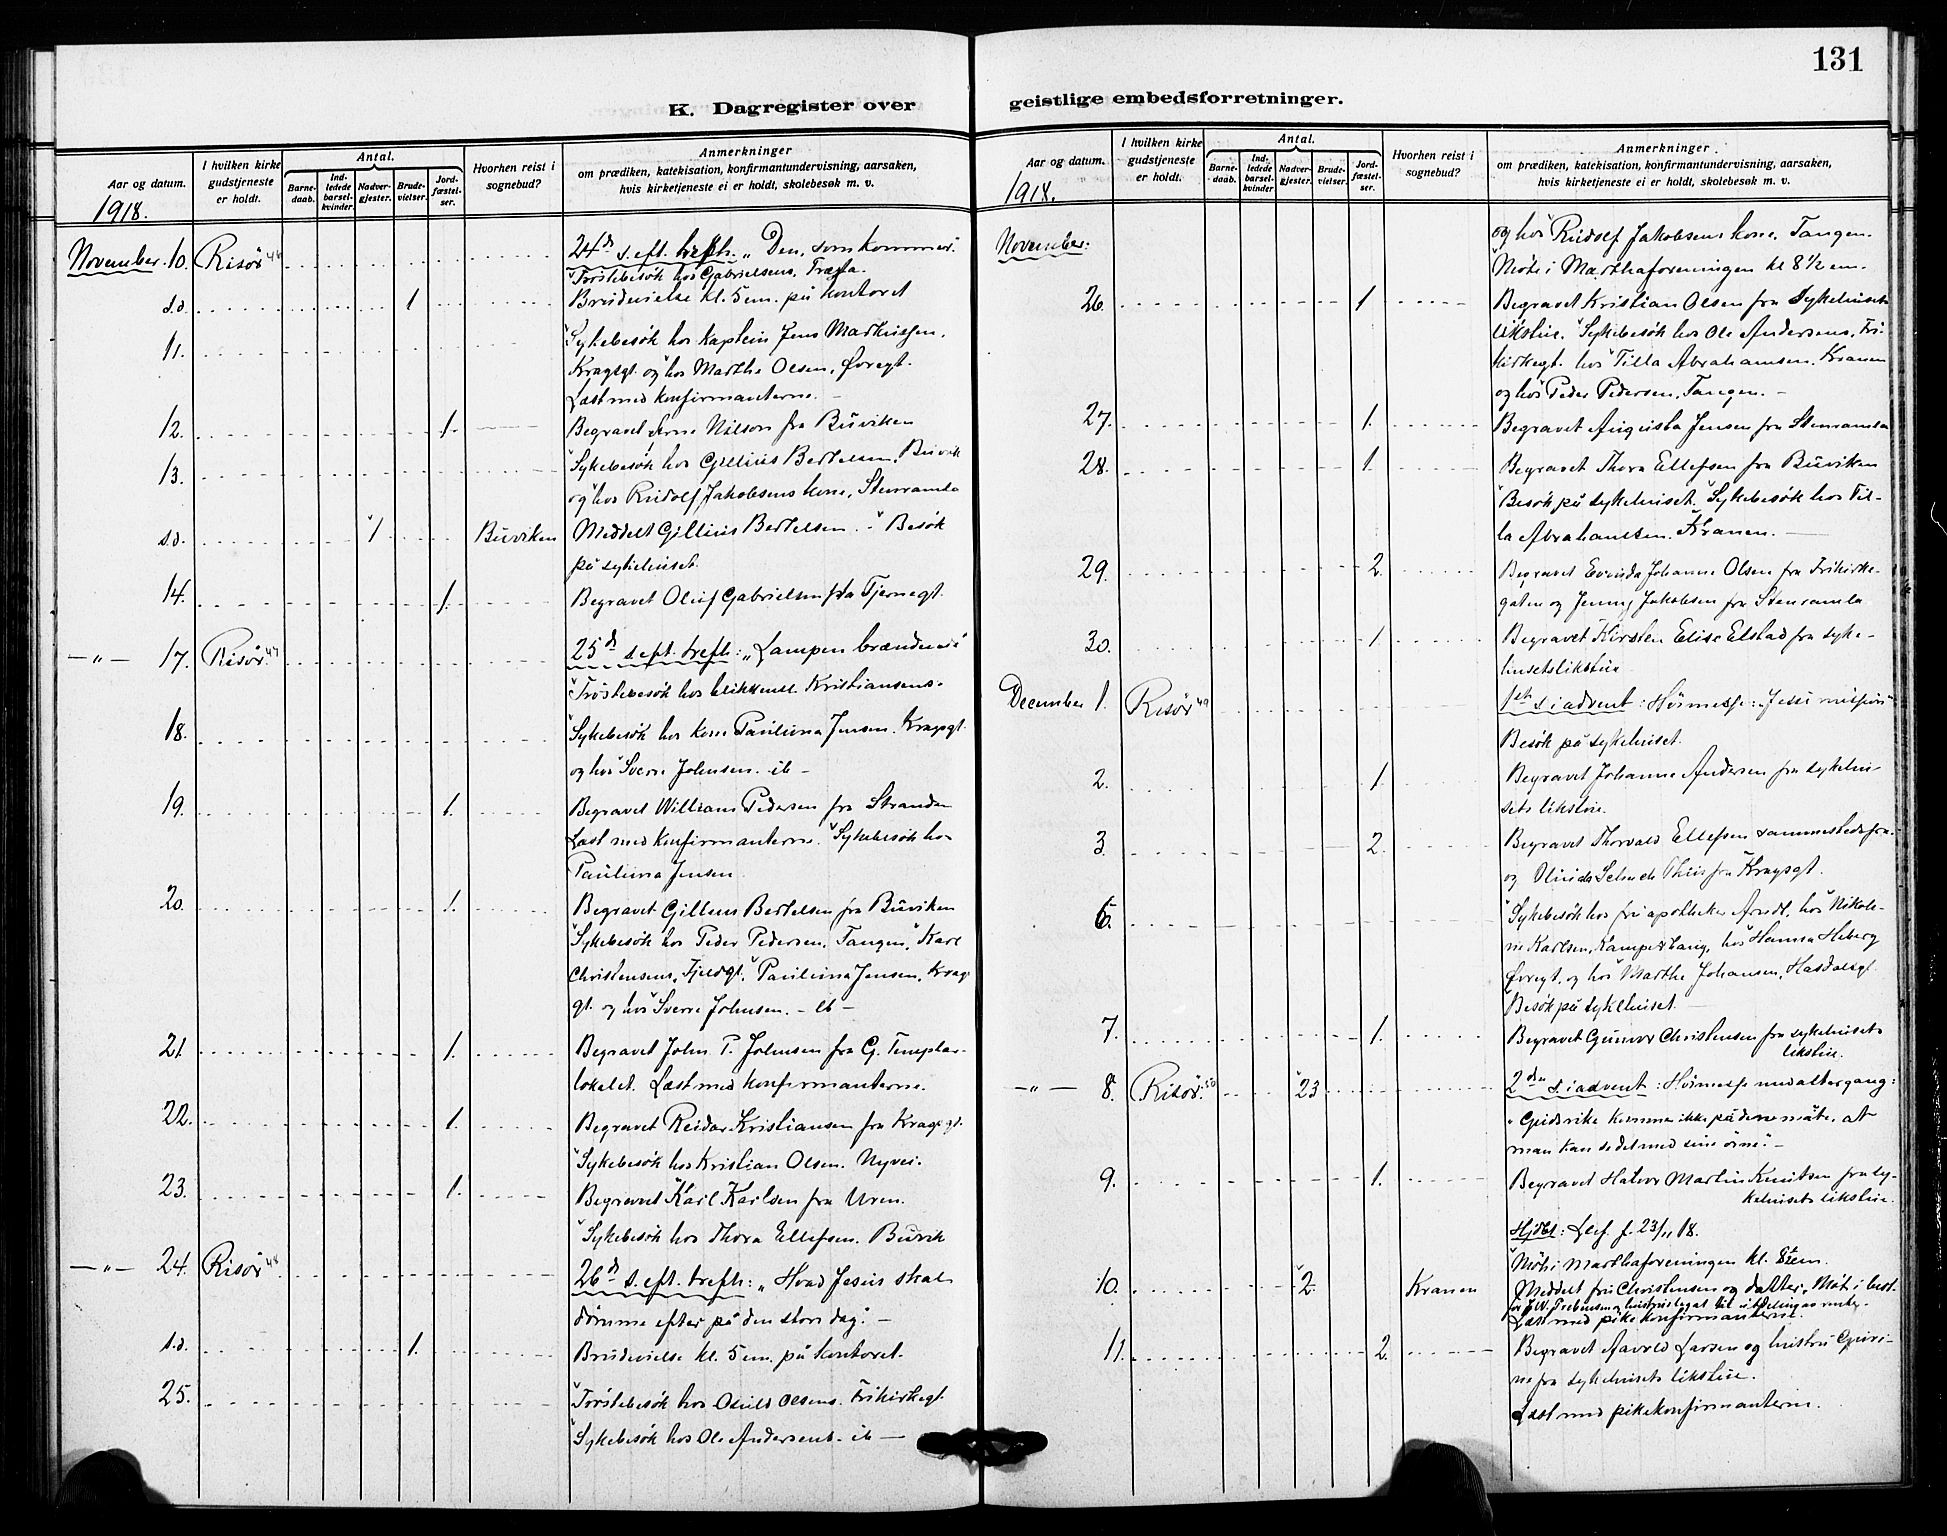 131
K. Dagregister over
Aar og datum.
I hvilken kirke gudstjeneste er holdt.
Antal.
Barne-daab.
Ind-ledede barsel-kvinder.
Nadver-gjester.
Brude-vielser.
Jord-fæstel-ser.
Hvorhen reist i sognebud?
Anmerkninger
om prædiken, katekisation, konfirmantundervisning, aarsaken,
hvis kirketjeneste ei er holdt, skolebesøk m. v.
1918.
November 10. Risør 46 24de s. eft. trefh. „Den, som kommer.
Trøstebesøk hos Gabrielsens,
s.d. 1 Brudevielse kl. 5 em. på kontoret
11. Sykebesøk hos Kaptein Jens
Kragsgt. og hos Marthe Olsen, Øvregt.
Læst med konfirmanterne. –
12. 1. Begravet Arne Nilsen fra Buviken
13. Sykebesøk hos Gillius Bertelsen, Buvik
og hos Rudolf Jakobsens kone, Stenramla
s.d. 1 Buviken Meddelt Gillius Bertelsen. – Besøk
på sykehuset.
14. 1. Begravet Oluf Gabrielsen fra Tjernegt.
– „ – 17. Risør 47 25de s. eft. trefh: „Lampen brændende"
Trøstebesøk hos blikkensl. Kristiansens.
18. Sykebesøk hos kone Pauline Jensen, Kragsgt.
og hos Sverre Johnsen. ib –
19. 1. Begravet William Pedersen fra Stranden
Læst med konfirmanterne. Sykebesøk hos
Pauline Jensen.
20. 1. Begravet Gillius Bertelsen fra Buviken
Sykebesøk hos Peder Pedersen, Tangen, Karl
Christensens, Fjeldgt. Pauline Jensen, Krags
gt. og hos Sverre Johnsen. – ib –
21. 1. Begravet John P. Johnsen fra G. Templar-
lokalet. Læst med konfirmanterne.
22. 1. Begravet Reidar Kristiansen fra Kragsgt.
Sykebesøk hos Kristian Olsen. Nyvei.
23. 1. Begravet Karl Karlsen fra Uren.
Sykebesøk hos Thora Ellefsen. Buvik
– „ – 24. Risør 48 26de s. eft. trefh: „Hvad Jesus skal
dømme efter på den store dag". –
s.d. 1. Brudevielse kl. 5 em. på kontoret.
25. Trøstebesøk hos Olsens. Frikirkegt.
Sykebesøk hos Ole Andersens. ib –
geistlige embedsforretninger.
Aar og datum.
I hvilken kirke gudstjeneste er holdt.
Antal.
Barne-daab.
Ind-ledede barsel-kvinder
Nadver-gjester.
Brude-vielser.
Jord-fæstel-ser.
Hvorhen reist i sognebud?
Anmerkninger
om prædiken, katekisation, konfirmantundervisning, aarsaken,
hvis kirketjeneste ei er holdt, skolebesøk m. v.
1918.
November: og hos Rudolf Jakobsens kone, Tangen.
Møte i Marthaforeningen kl 8½ em.
26. 1 Begravet Kristian Olsen fra Sykehusets
likstue. Sykebesøk hos Ole Andersens, Fri-
kirkegt. hos Tilla Abrahamsen. Kranen
og hos Peder Pedersen, Tangen. –
27. 1. Begravet Augusta Jensen fra Stenramla
28. 1. Begravet Thora Ellefsen fra Buviken
Besøk på sykehuset. Sykebesøk hos Til-
la Abrahamsen. Kranen. –
29. 2. Begravet Johanne Olsen fra Frikirke-
gaten og Jenny Jakobsen fra Stenramla.
30. 1 Begravet Kirsten Elise Elstad fra syke-
husets likstue
December 1. Risør 49 1ste s. i advent: Høimesse: „Jesu mission"
Besøk på sykehuset.
2. 1. Begravet Johanne Andersen fra sykehu-
sets likstue.
3. 2. Begravet Thorvald Ellefsen sammestedsfra
og fra Kragsgt.
6. Sykebesøk hos fru apotheker Arndt, hos Nikoli-
ne Karlsen, Kamperhaug, hos Hanna Heberg
Øvregt. og hos Marthe Johansen, Hasdalsgt.
Besøk på sykehuset. –
7. 1. Begravet Gunvor Christensen fra sykehusets
likstue.
– „ – 8. Risør 50 23 2den s. i advent: Høimesse med altergang:
„Guds rike kommer ikke på denne måte, at
man kan se det med sine øine." –
9. 1. Begravet Halvor Martin Knutsen fra sy-
kehusets likstue.
Hjdbs: Olef. f. 23/11 18.
Møte i Marthaforeningen kl. 8½ em.
10. 2. Kranen Meddelt fru Christensen og datter. Møte i best.
Læst med pike konfirmanterne.
11. 2. Begravet Aavold Larsen og hustru Guri-
ne fra sykehusets likstue.
Læst med pikekonfirmanterne.